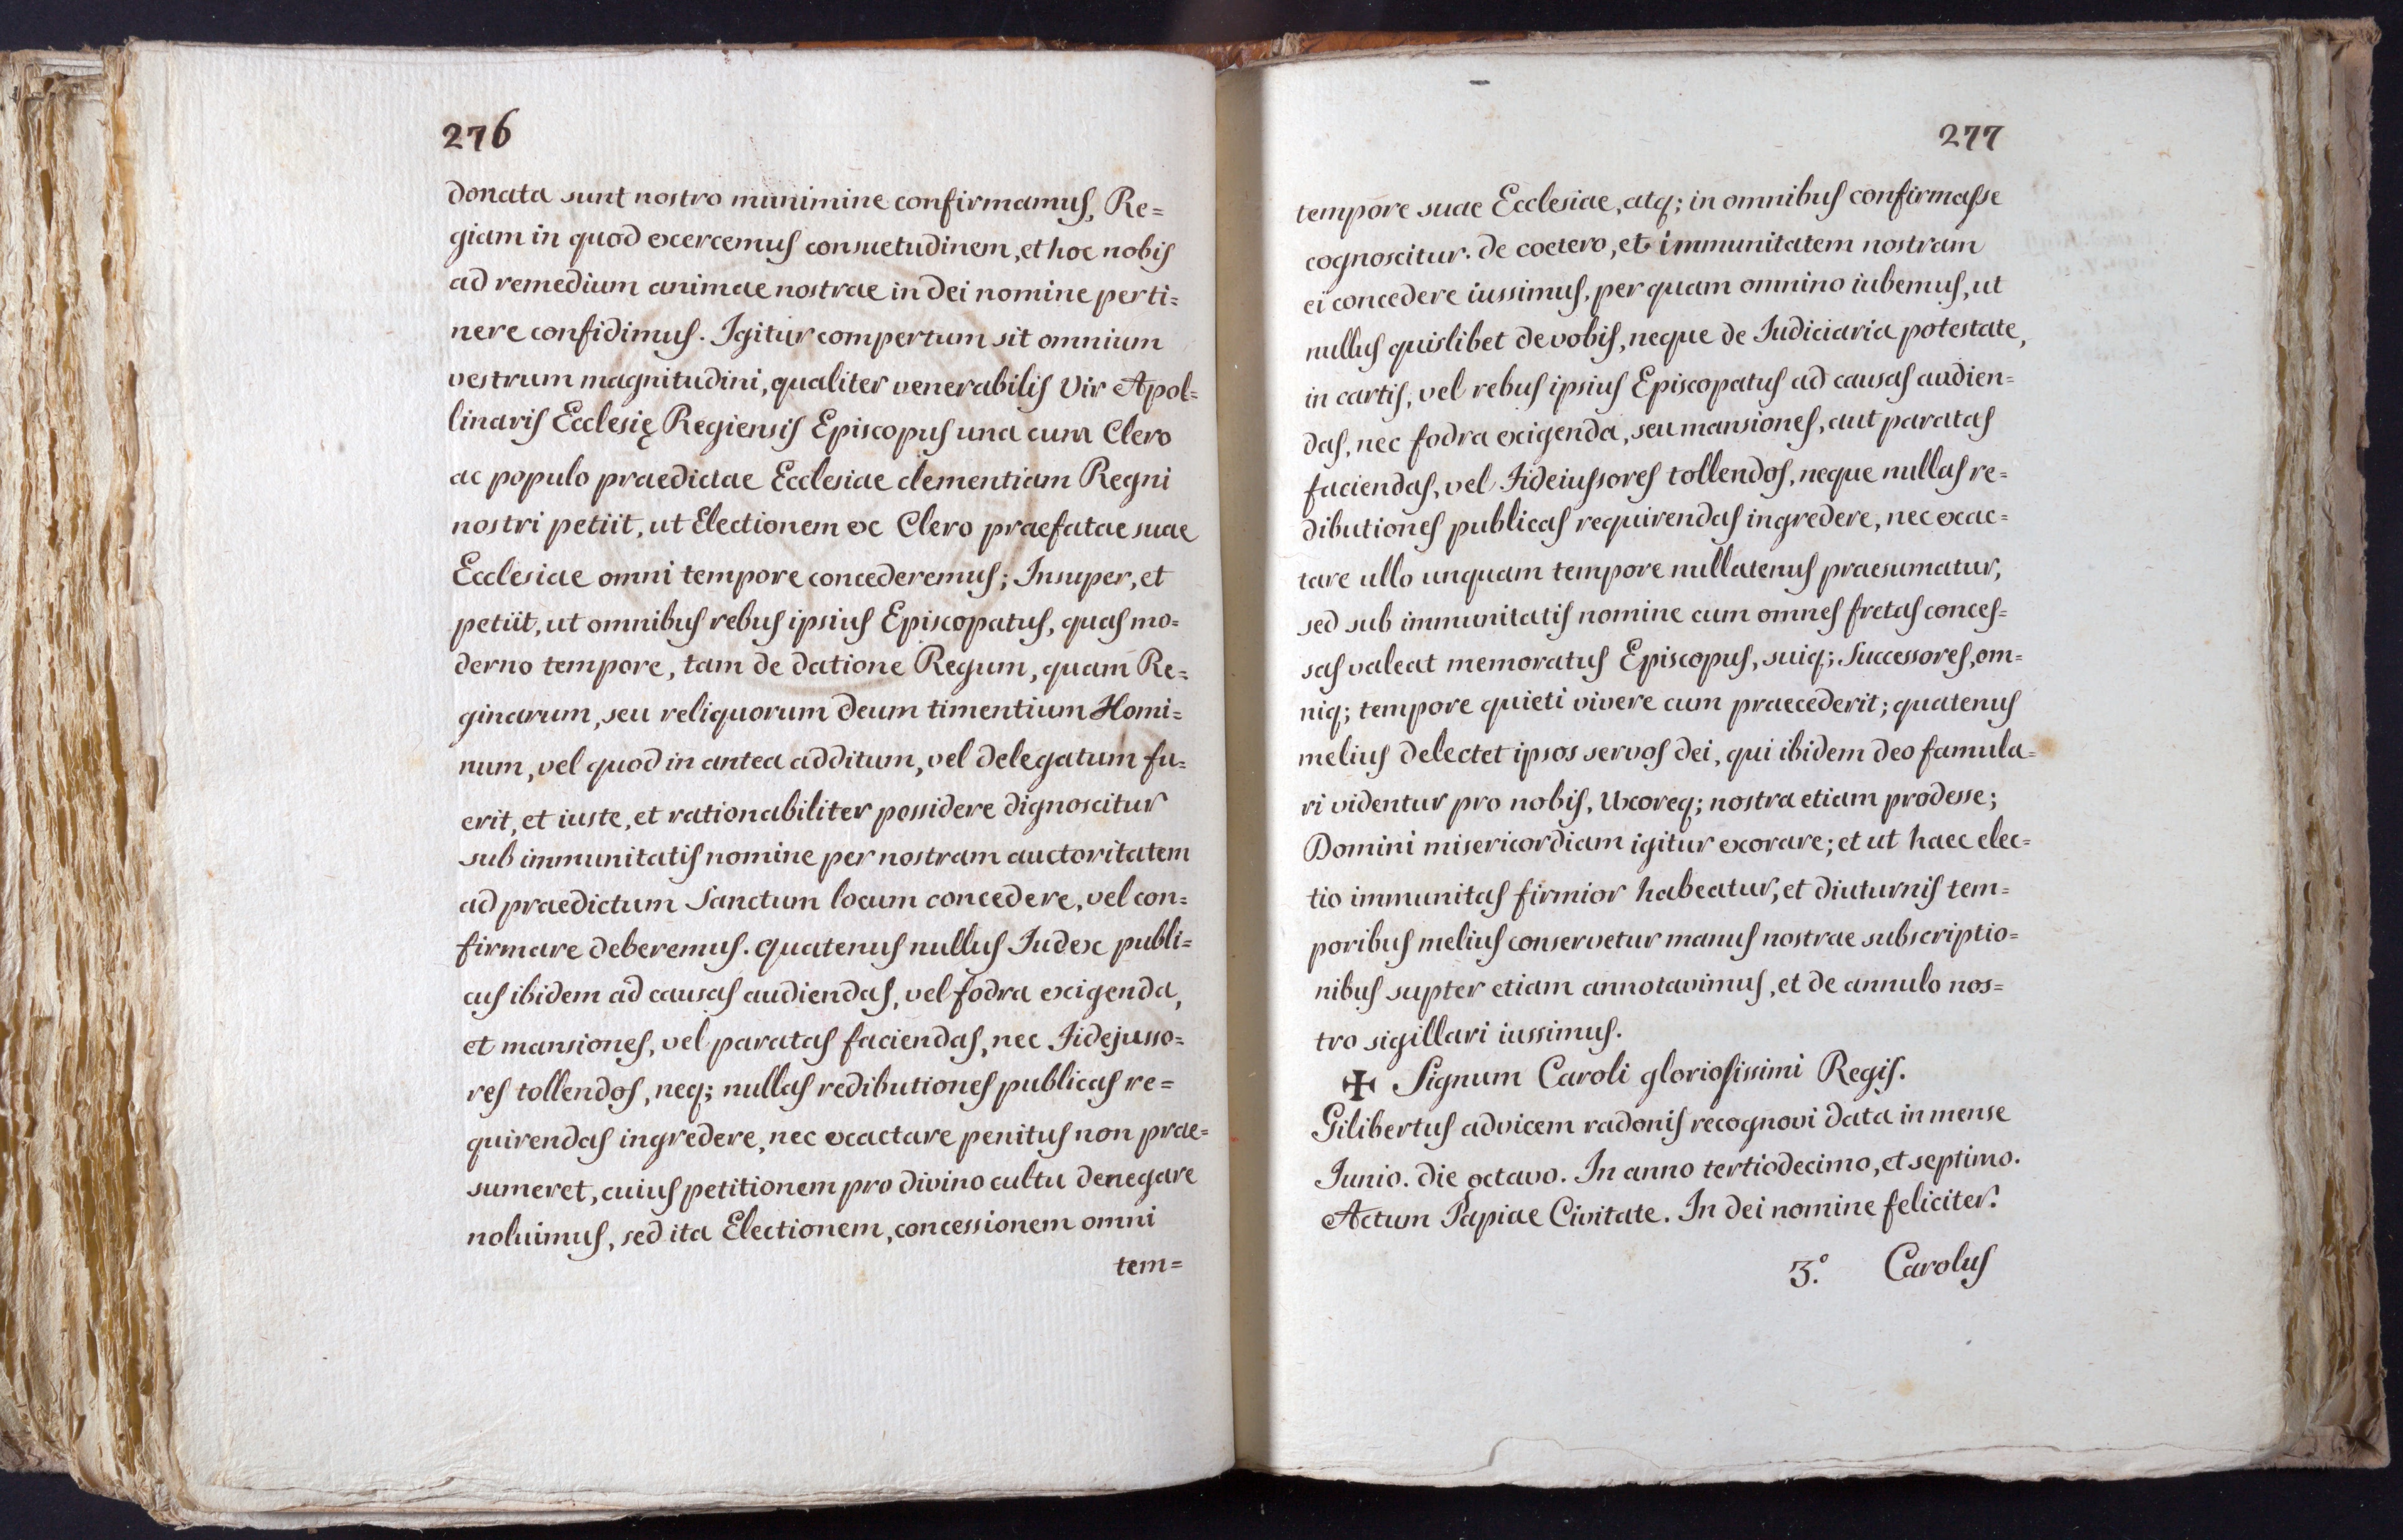 276
donata sunt nostro munimine confirmamus, Re=
giam in quod excercemus consuetudinem, et hoc nobis
ad remedium animae nostrae in dei nomine perti=
nere confidimus. Igitur compertum sit omnium
vestrum magnitudini, qualiter venerabilis Vir Apol=
linaris Ecclesię Regiensis Episcopus una cum Clero
ac populo praedictae Ecclesiae clementiam Regni
nostri petiit, ut Electionem ex Clero praefatae suae
Ecclesiae omni tempore concederemus; Insuper, et
petiit, ut omnibus rebus ipsius Episcopatus, quas mo=
derno tempore, tam de datione Regum, quam Re=
ginarum, seu reliquorum deum timentium Homi=
num, vel quod in antea additum, vel delegatum fu=
erit, et iuste, et rationabiliter possidere dignoscitur
sub immunitatis nomine per nostram auctoritatem
ad praedictum Sanctum locum concedere, vel con=
firmare deberemus. quatenus nullus Iudex publi=
cus ibidem ad causas audiendas, vel fodra exigenda,
et mansiones, vel paratas faciendas, nec Fidejusso=
res tollendos, neq; nullas redibutiones publicas re=
quirendas ingredere, nec exactare penitus non prae=
sumeret, cuius petitionem pro divino cultu denegare
noluimus, sed ita Electionem, concessionem omni
tem=
277
tempore suae Ecclesiae, atq; in omnibus confirmasse
cognoscitur. de coetero, et immunitatem nostram
ei concedere iussimus, per quam omnino iubemus, ut
nullus quislibet de vobis, neque de Iudiciaria potestate,
in cartis, vel rebus ipsius Episcopatus ad causas audien=
das, nec fodra exigenda, seu mansiones, aut paratas
faciendas, vel Fideiussores tollendos, neque nullas re=
dibutiones publicas requirendas ingredere, nec exac=
tare ullo unquam tempore nullatenus praesumatur,
sed sub immunitatis nomine cum omnes fretas conces=
sas valeat memoratus Episcopus, suiq; Successores, om=
niq; tempore quieti vivere cum praecederit; quatenus
melius delectet ipsos servos dei, qui ibidem deo famula=
ri videntur pro nobis, Uxoreq; nostra etiam prodesse;
Domini misericordiam igitur exorare; et ut haec elec=
tio immunitas firmior habeatur, et diuturnis tem=
poribus melius conservetur manus nostrae subscriptio=
nibus supter etiam annotavimus, et de annulo nos=
tro sigillari iussimus.
✠ Signum Caroli gloriosissimi Regis.
Gilibertus advicem radonis recognovi data in mense
Iunio. die octavo. In anno tertiodecimo, et septimo.
Actum Papiae Civitate. In dei nomine feliciter.
3.° Carolus